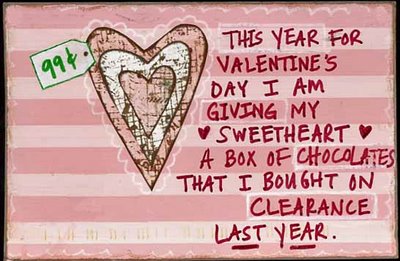 99¢.
THIS YEAR FOR
VALENTINE'S
DAY I AM
GIVING MY
♥ SWEETHEART ♥
A BOX OF CHOCOLATES
THAT I BOUGHT ON
CLEARANCE
LAST YEAR.